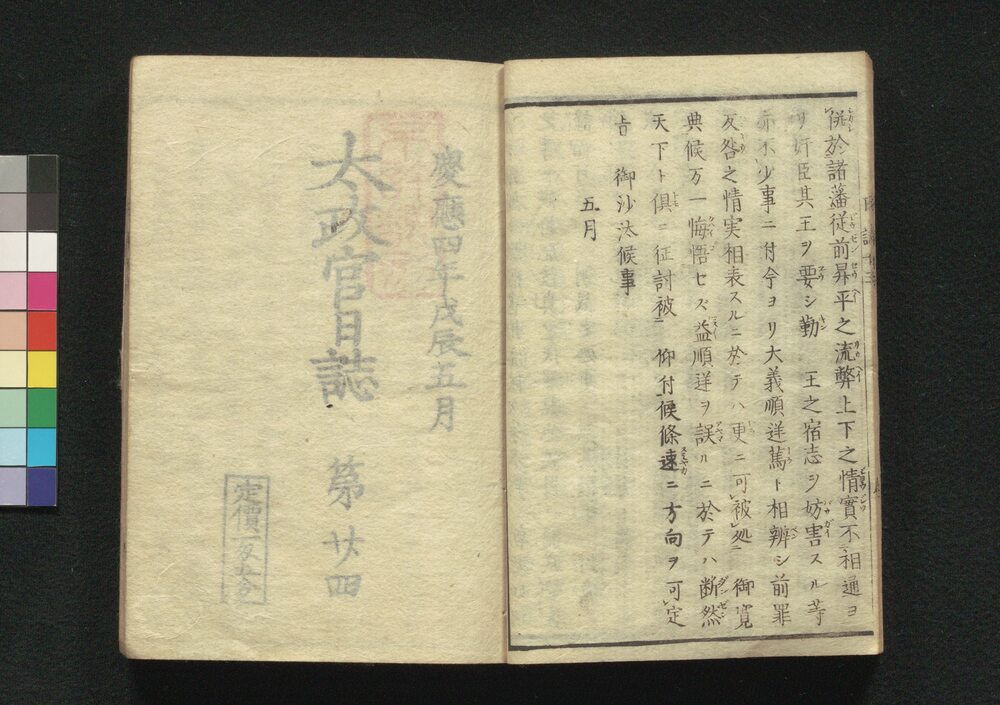 併於諸藩従前昇平之流弊上下之情實不相通ヨ
リ奸臣其王ヲ要シ勤　王之宿志ヲ妨害スル等
亦不少事ニ付今ヨリ大義順逆篤ト相辨シ前罪
友咎之情実相表スルニ於テハ更ニ可被処ニ　御寛
典候万一悔悟セズ益順逆ヲ誤ルニ於テハ断然
天下ト俱ニ征討被ニ　仰付候條速ニ方向ヲ可定
旨　御沙汰候事
五月
慶應四年戊辰五月
太政官日誌　第廿四
定價